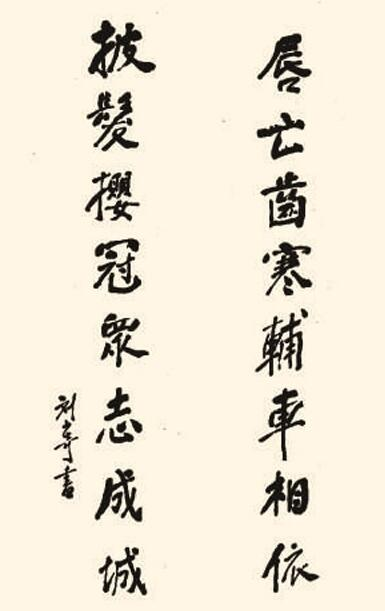 唇亡齒寒輔車相依
披髮攖冠眾志成城
刘少奇書